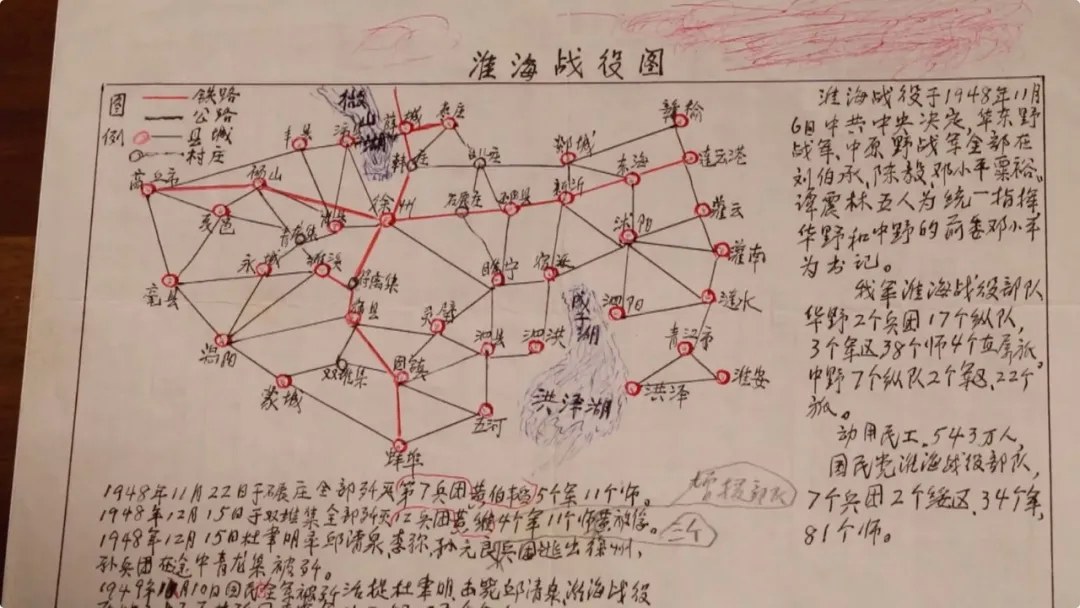 淮海战役图
图例
铁路
公路
县城
村庄
微山湖
丰县
韩庄
郯城
赣榆
连云港
东海
新沂
商丘市
砀山
徐州
夏邑
青龙集
永城
濉溪
亳县
涡阳
蒙城
双堆集
固镇
灵璧
睢宁
泗县
泗洪
五河
蚌埠
沭阳
灌云
灌南
涟水
泗阳
成子湖
洪泽湖
洪泽
淮安
淮海战役于1948年11月
6日中共中央决定,华东野
战军,中原野战军全部在
刘伯承,陈毅,邓小平粟裕。
谭震林五人为统一指挥
华野和中野的前委邓小平
为书记。
我军淮海战役部队
华野2个兵团17个纵队,
3个军区38个师4个直属旅。
中野7个纵队2个军区,22个
旅。
动用民工,543万人,
国民党淮海战役部队,
7个兵团2个绥区,34个军,
81个师。
1948年11月22日于碾庄全部歼灭第7兵团黄伯韬5个军11个师。
增援部队
1948年12月15日于双堆集全部歼灭12兵团黄维4个军11个师黄放学。
三个
1948年12月15日杜聿明率邱清泉,李弥,孙元良兵团逃出徐州,
孙兵团在途中青龙集被歼。
1949年1月10日国民全军被歼活捉杜聿明,击毙邱清泉,淮海战役